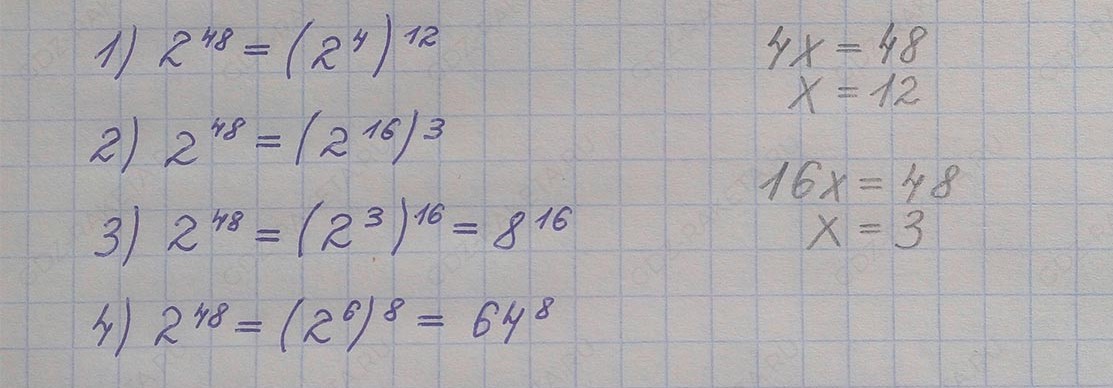 1) 2^48 = (2^4)^12
4x = 48
x = 12
2) 2^48 = (2^16)^3
16x = 48
x = 3
3) 2^48 = (2^3)^16 = 8^16
4) 2^48 = (2^6)^8 = 64^8